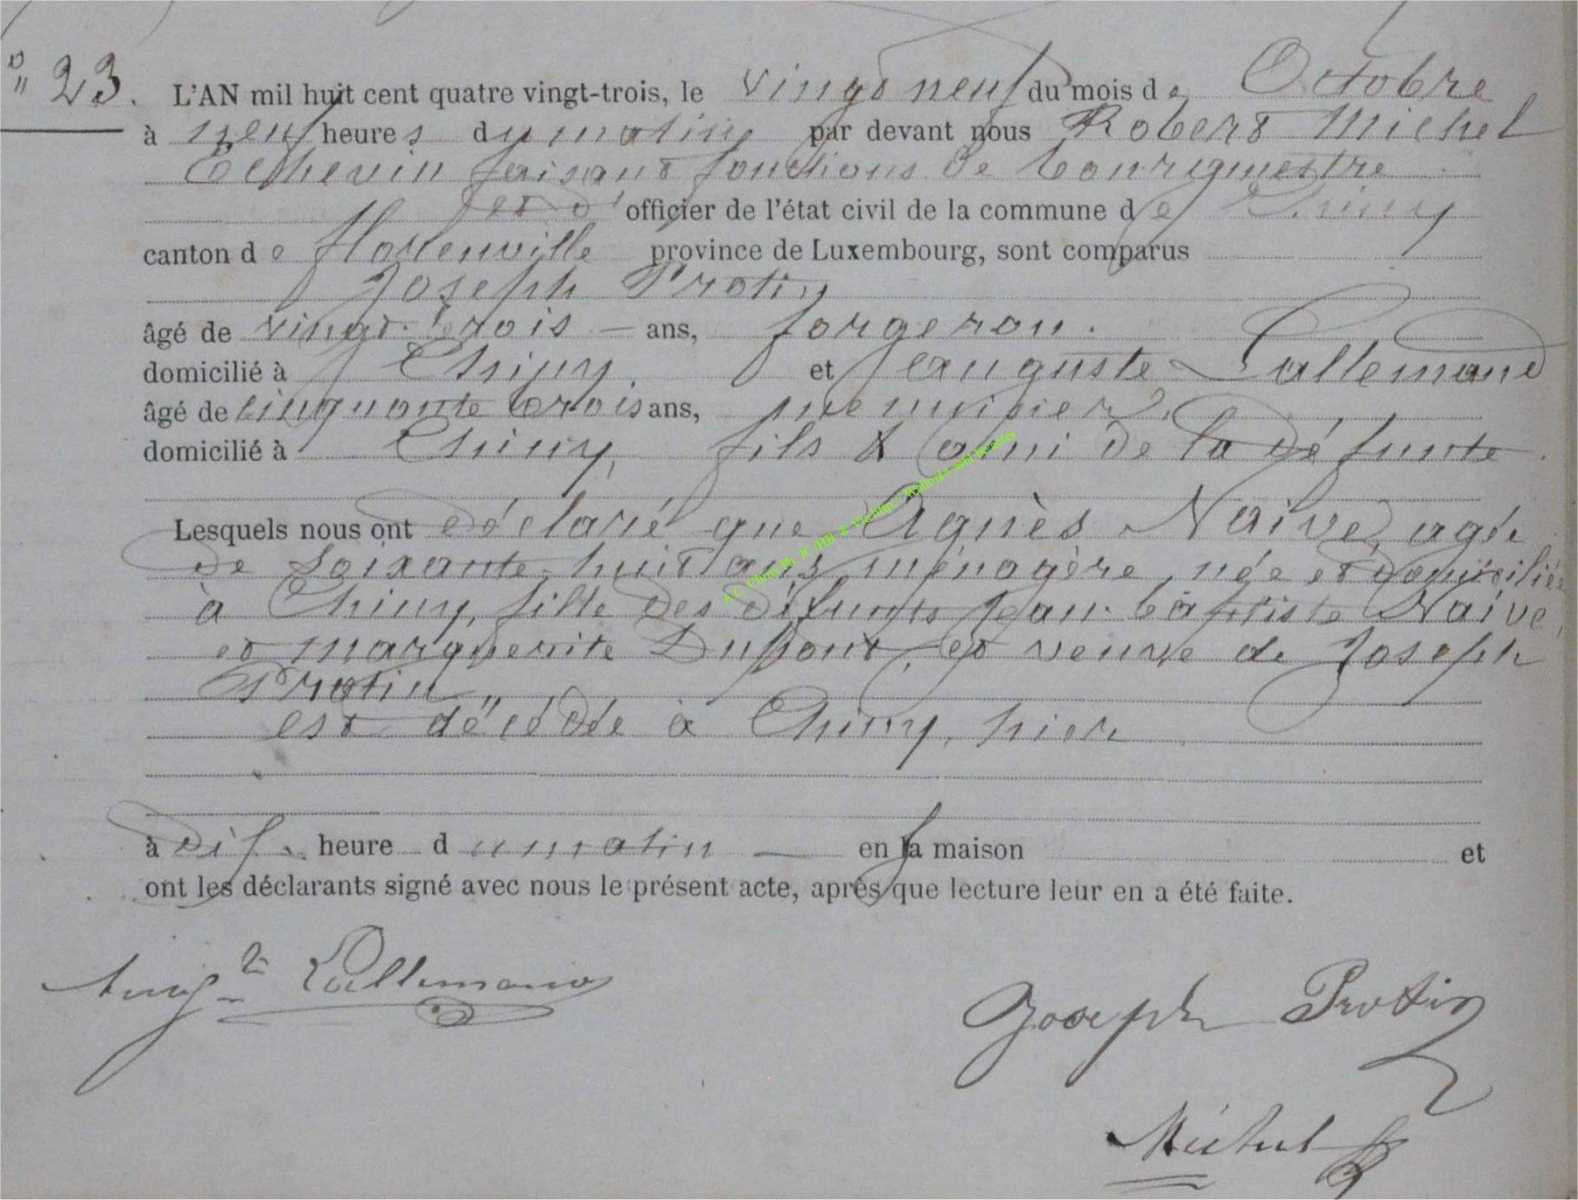 N° 23. L'AN mil huit cent quatre vingt-trois, le vingt neuf du mois de Octobre
à neuf heures du matin par devant nous Robert Michel
Echevin faisant fonctions de bourgmestre
et d' officier de l'état civil de la commune de Chiny
canton de Florenville province de Luxembourg, sont comparus
Joseph Protin
âgé de vingt-trois — ans, forgeron.
domicilié à Chiny, et Jean auguste Lallemand
âgé de cinquante trois ans, menuisier,
domicilié à Chiny, fils & ami de la défunte.
Lesquels nous ont déclaré que Agnès Naive, agée
de soixante-huit ans, ménagère, née et domiciliée
à Chiny, fille des défunts Jean-baptiste Naive,
et marguerite Dupont, et veuve de Joseph
Protin "
est décédée à Chiny, hier
à dix heure du matin — en sa maison et
ont les déclarants signé avec nous le présent acte, après que lecture leur en a été faite.
Augte Lallemand
Joseph Protin
Michel